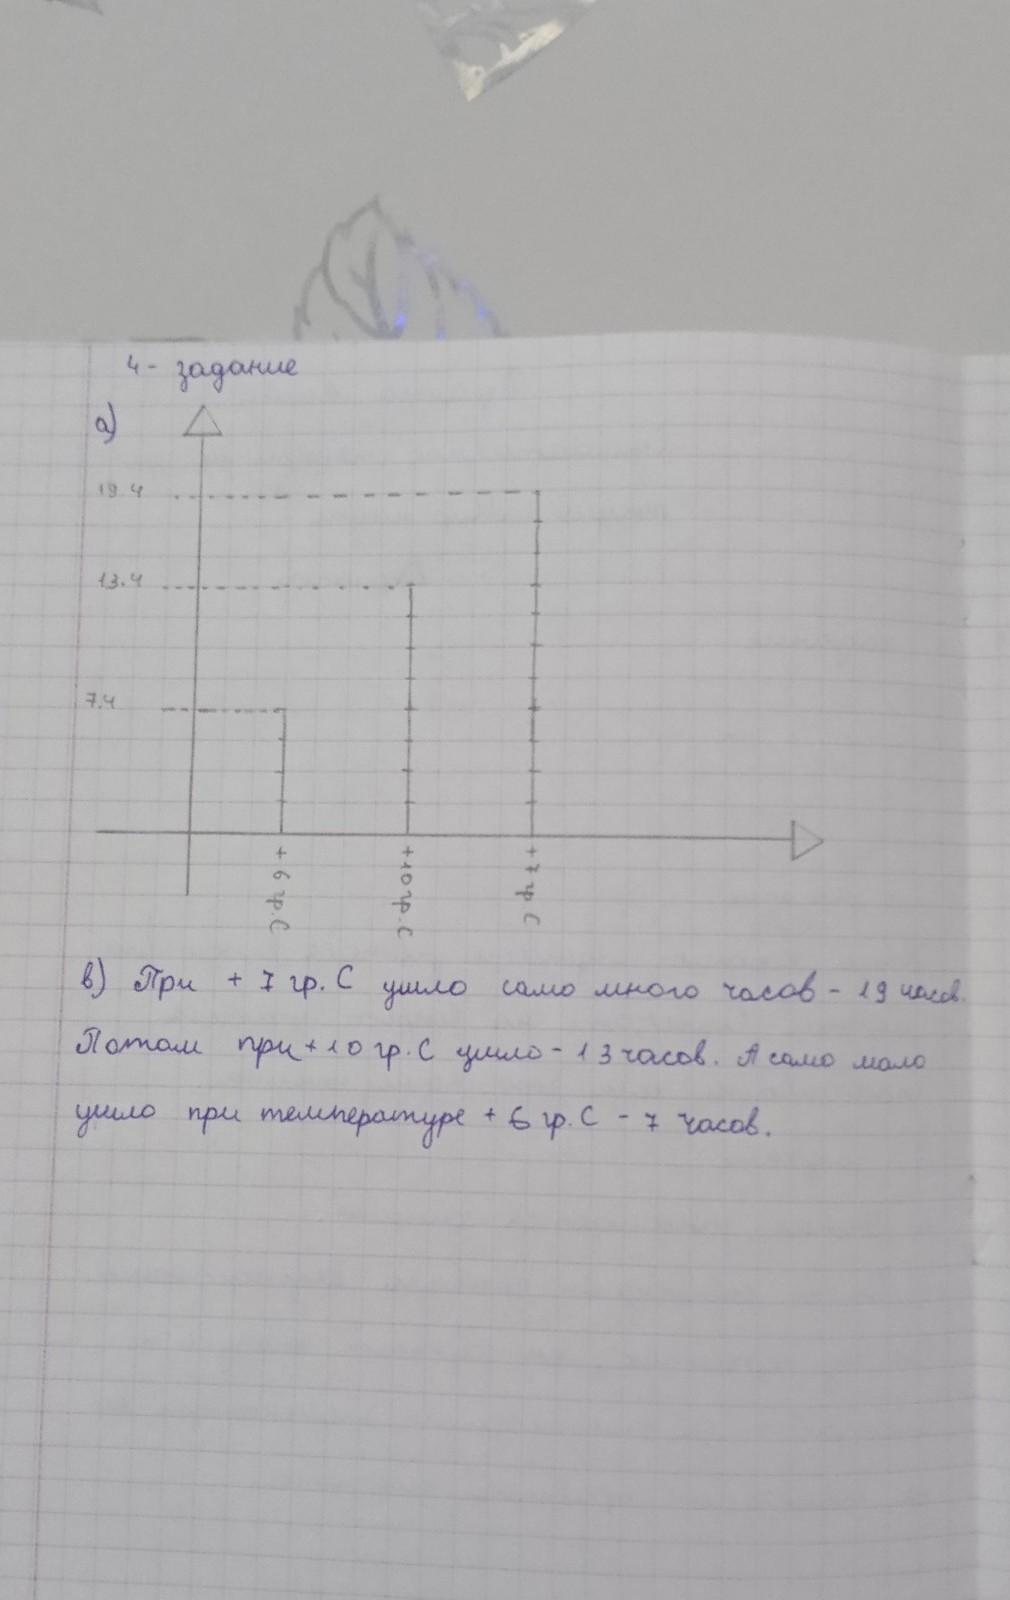 4- задание
а)
19.ч
13.ч
7.ч
+6 гр.С
+10 гр.С
+7 гр.С
в) При +7 гр.С ушло само много часов - 19 часов.
Потом при +10 гр.С ушло - 13 часов. А само мало
ушло при температуре +6 гр.С - 7 часов.